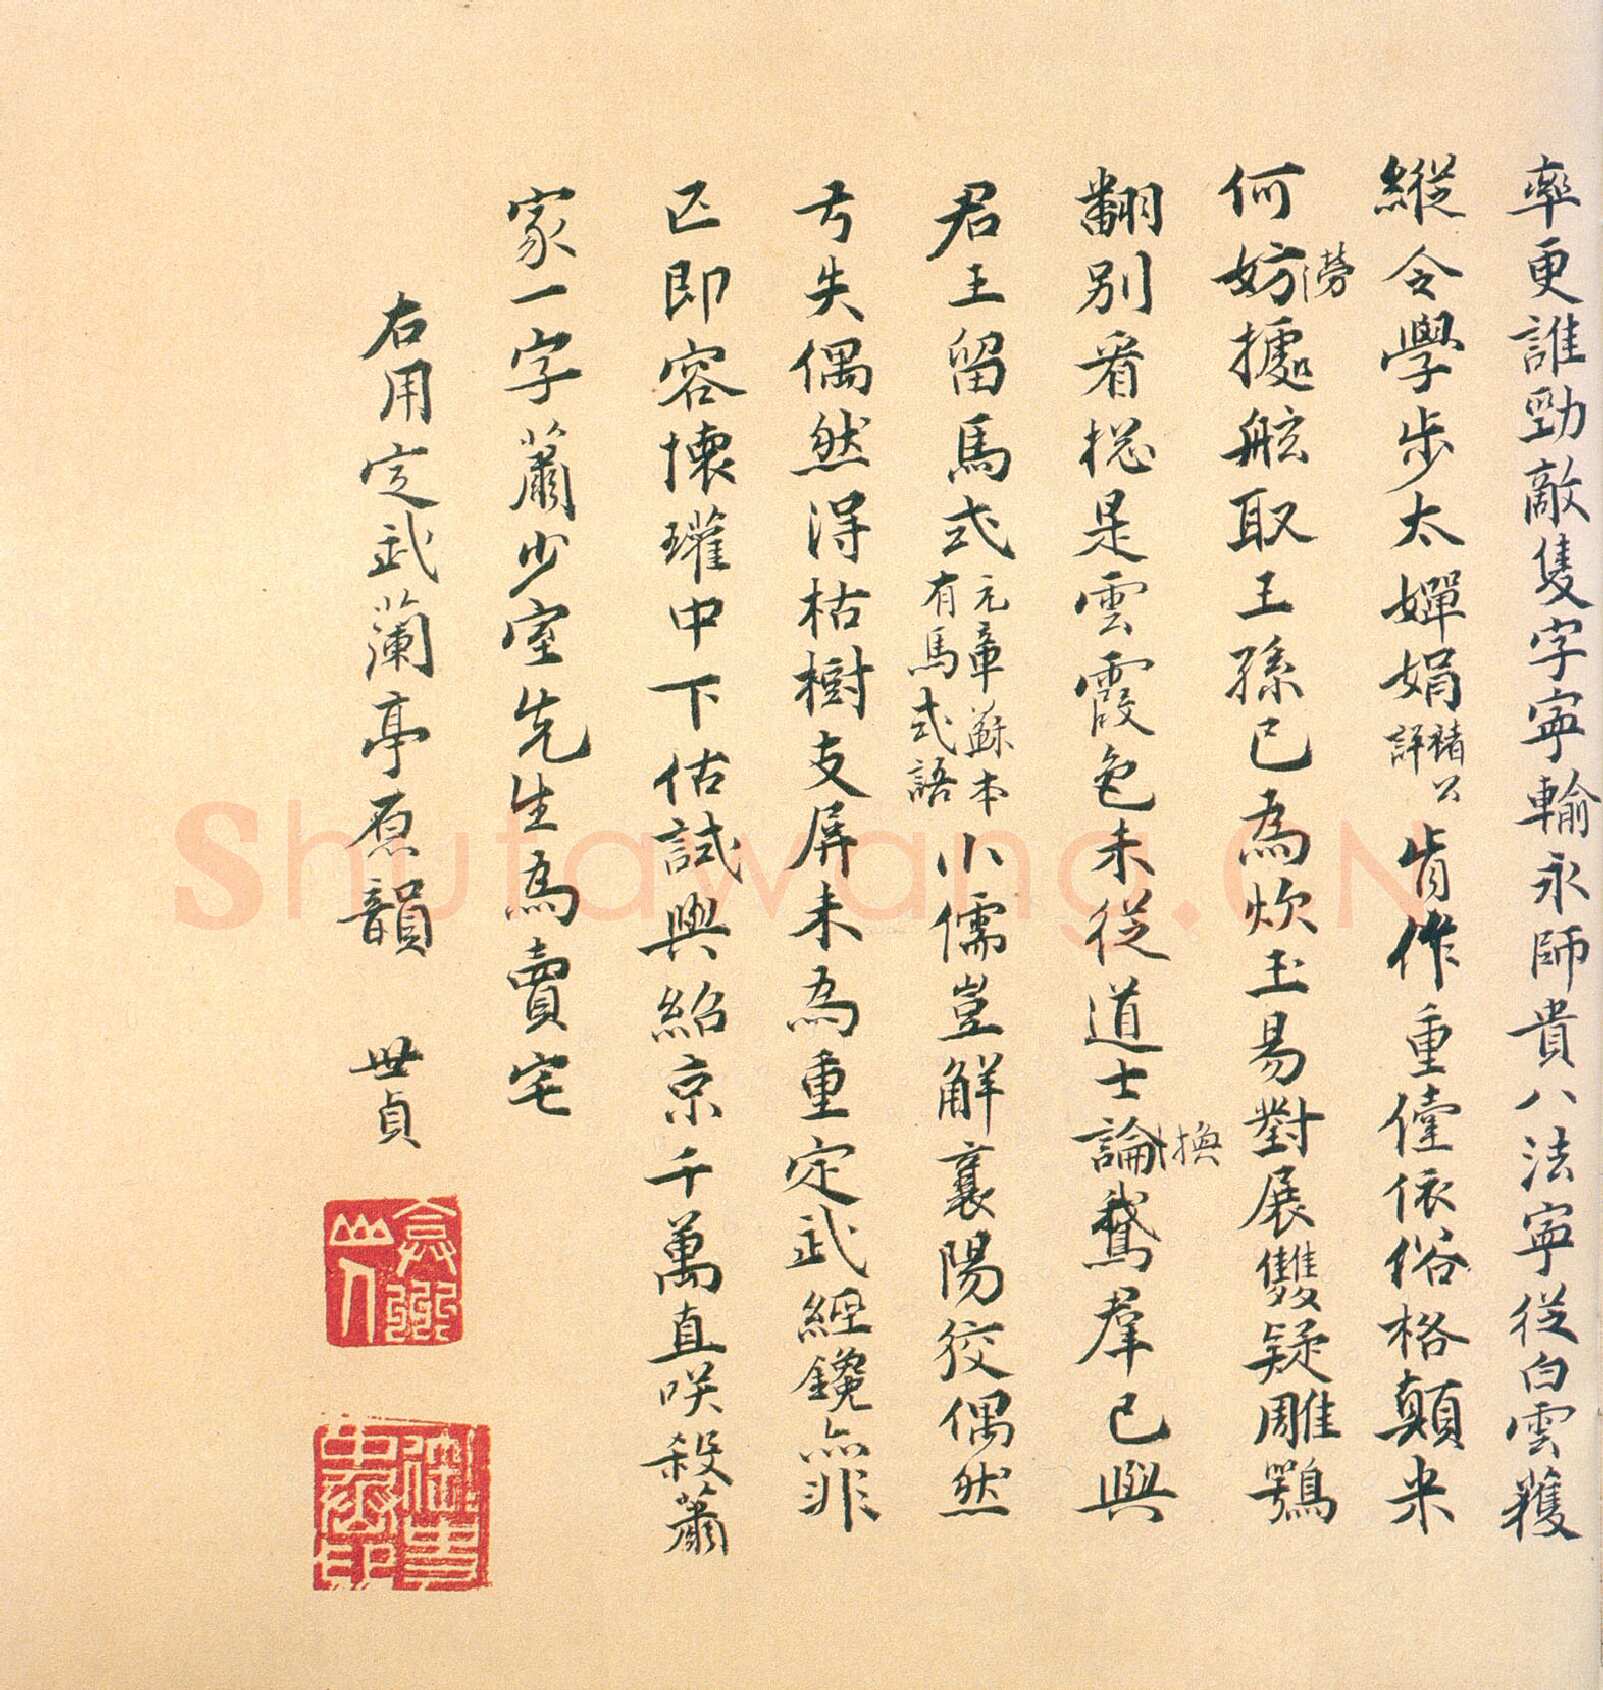 率更誰勁敵隻字寧輸永師貴八法寧從白雲獲
縱令學步太嬋娟
褚公
評
肯作重儓依俗格顛米
何妨據舷取王孫已為炊玉易對展雙疑雕鶚
澇
翻別看捴是雲霞色未從道士論鵞羣已與
撫
君王留馬式
元章蘇本
有馬式語
小儒豈解襄陽狡偶然
弓失偶然得枯樹支屏未為重定武經鑱亦非
匹即容懷瓘中下估試與紹京千萬直咲殺蕭
家一字蕭少室先生為賣宅
右用定武蘭亭原韻 世貞